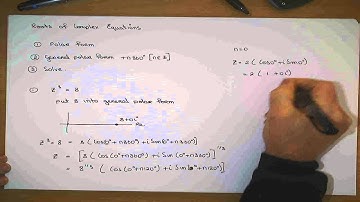 Roots of Complex Equations
① Polar form
② General polar form +n360° [n∈Z]
③ Solve
① Z³ = 8
put 8 into general polar form
8+0i
Re
Z³ = 8 = 8 (cos(0°+n360°) + i sin(0°+n360°))
Z = [8 (cos(0°+n360°) + i sin(0°+n360°)]^1/3
= 8^1/3 (cos(0°+n120°) + i sin(0°+n120°)]
n=0
Z = 2 (cos0°+i sin0°)
= 2 (1 + 0i)